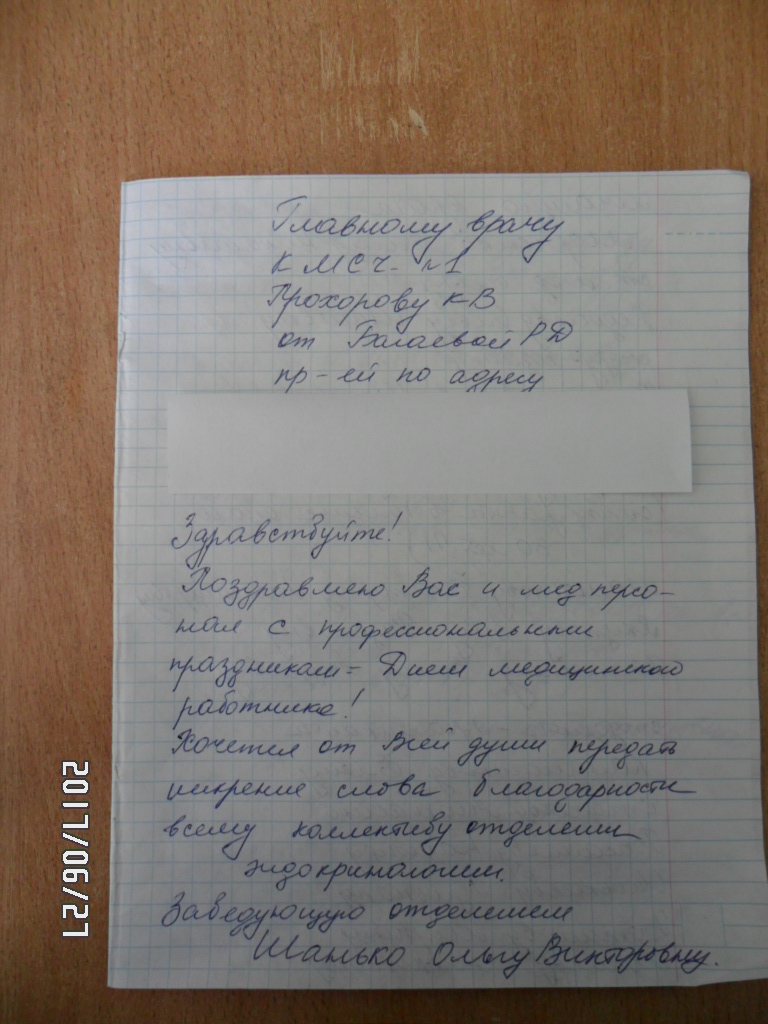 Главному врачу
КМСЧ- n1
Прохорову КВ
от Багаевой РД
пр-ей по адресу
Здравствуйте!
Поздравляю Вас и мед персо-
нал с профессиональным
праздником = Днем медицинского
работника!
Хочется от всей души передать
искрение слова благодарности
всему коллективу отделении
эндокринологии.
Заведующую отделением
Шанько Ольгу Викторовну.
2017/06/27